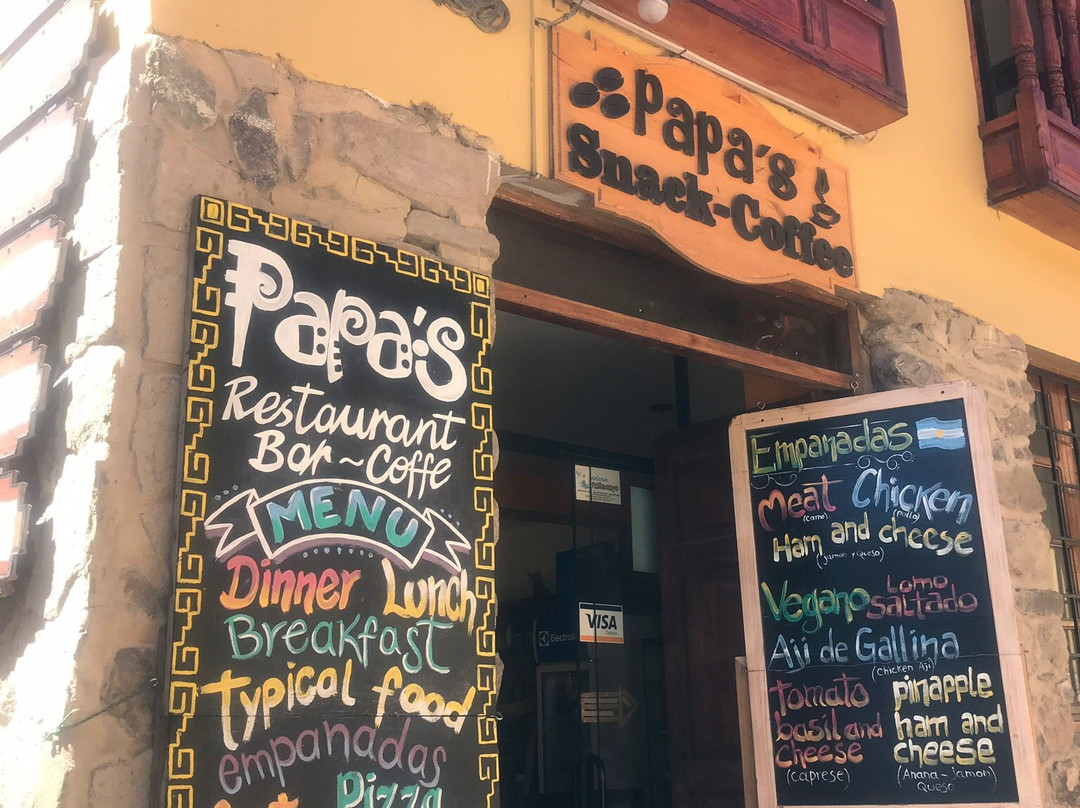 Papa's
Snack-Coffee
Papa's
Restaurant
Bar~Coffe
MENU
Dinner Lunch
Breakfast
Typical food
empanadas
Pizza
VISA
Electrol
Empanadas
Meat Chicken
(Carne) (Pollo)
Ham and cheese
(Jamon y Queso)
Vegano Lomo
Saltado
Aji de Gallina
(Chicken Aji)
tomato
basil and
cheese
(caprese)
pinapple
ham and
cheese
(Anana-Jamon)
Queso